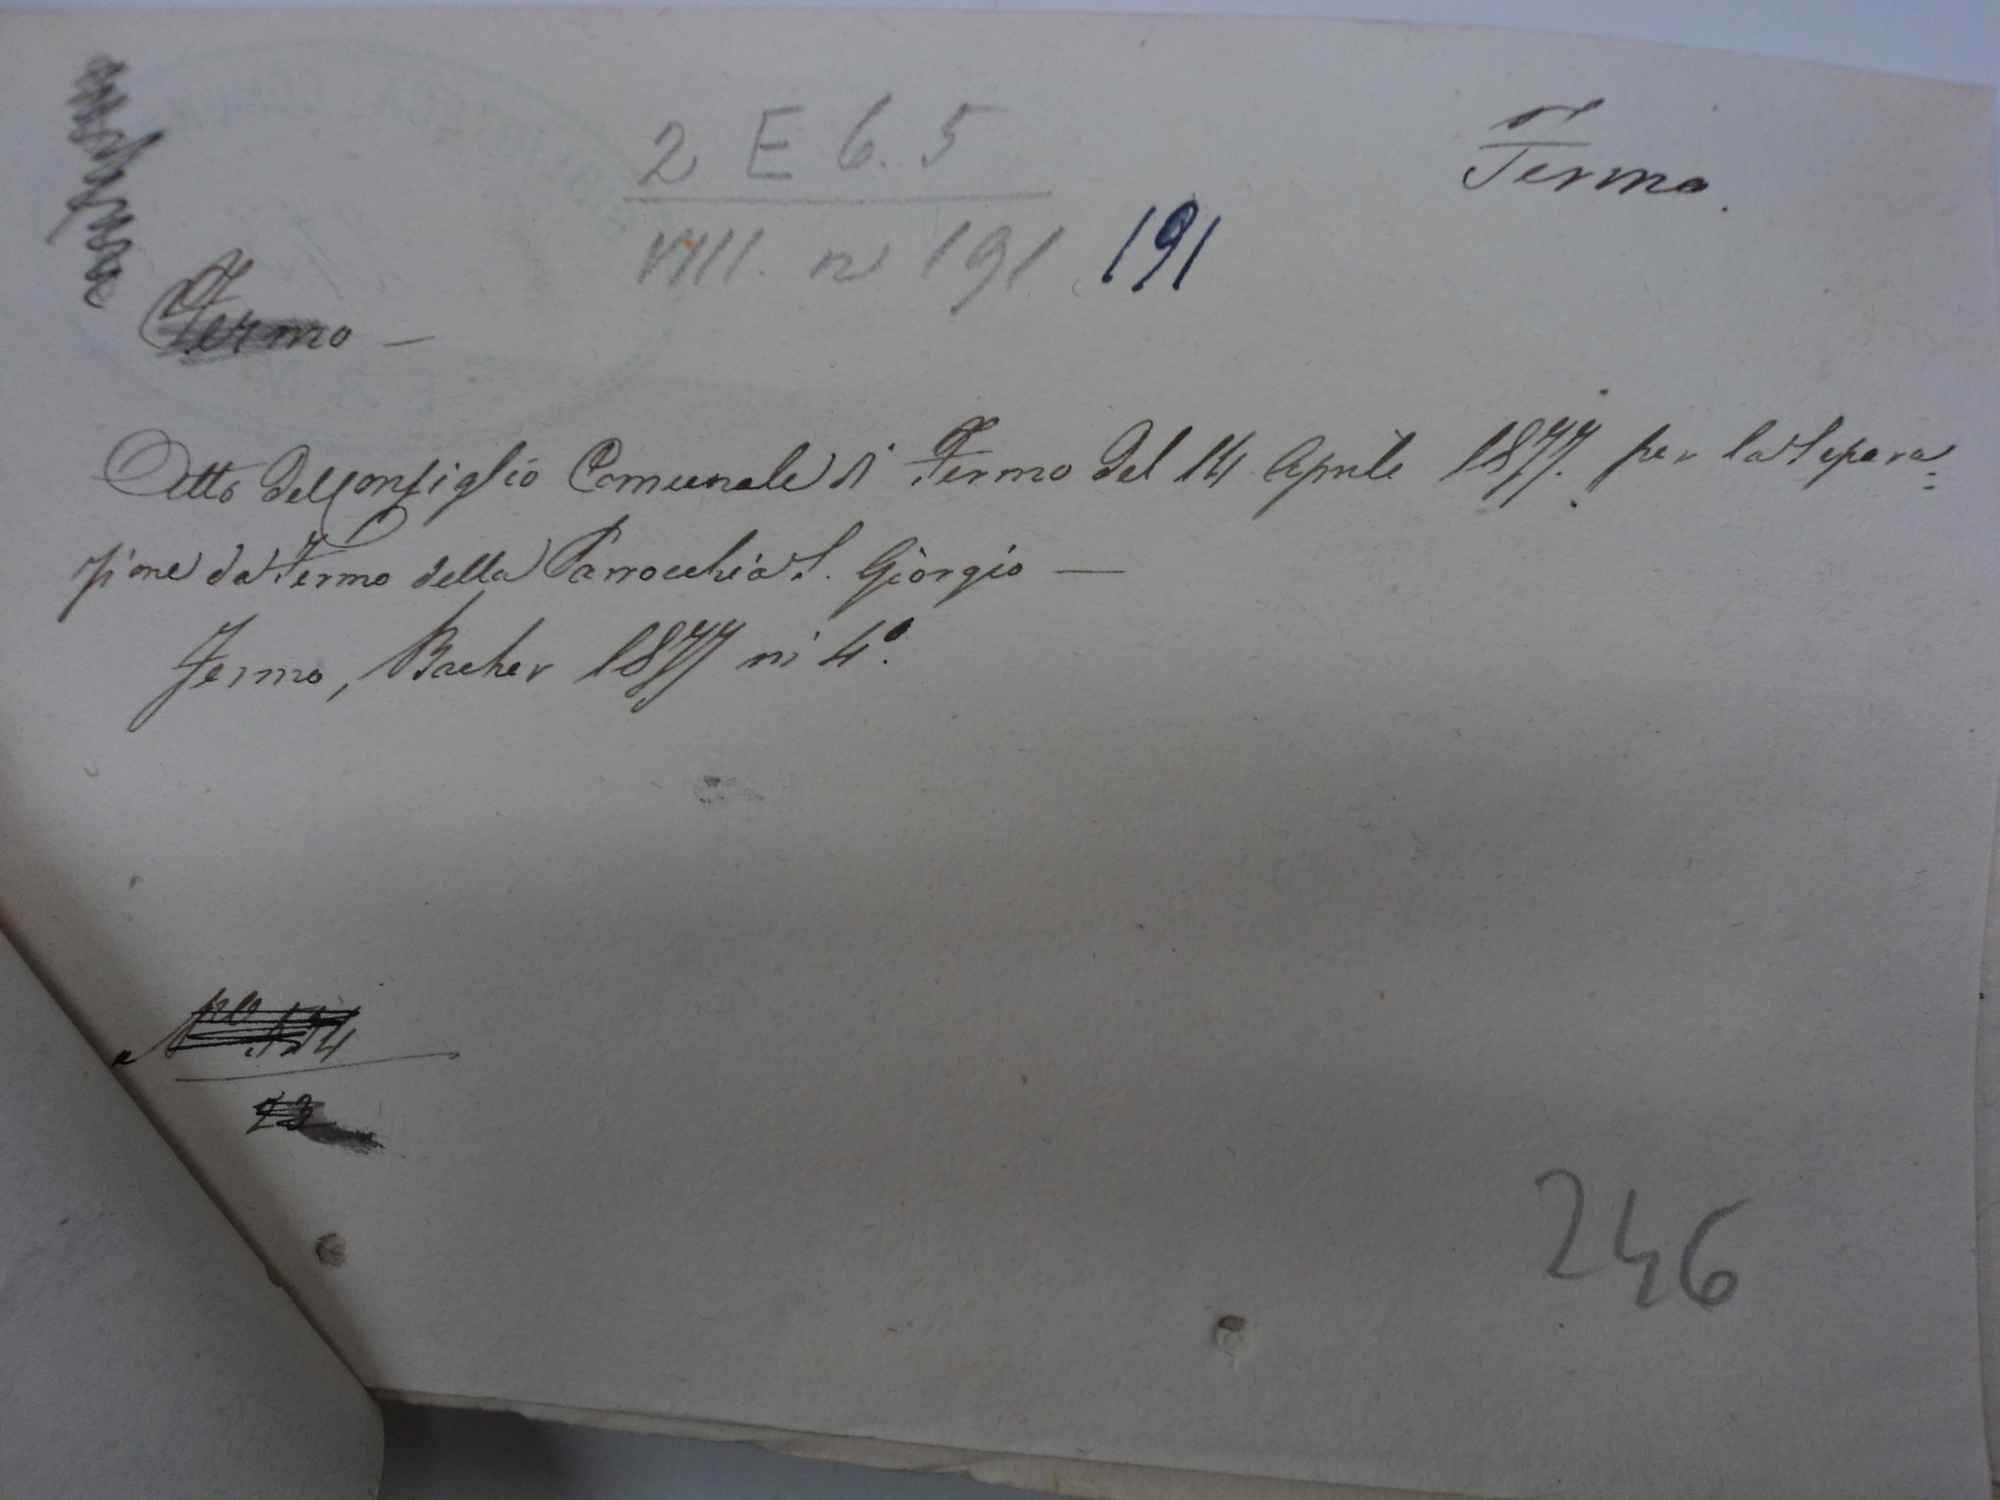 2 E 6. 5
Fermo.
VIII. n 191 191
Fermo —
Atto del Consiglio Comunale di Fermo del 14 Aprile 1877. per la Separa=
zione da Fermo della Parrocchia S. Giorgio —
Fermo, Bacher 1877 in 4°.
23
246